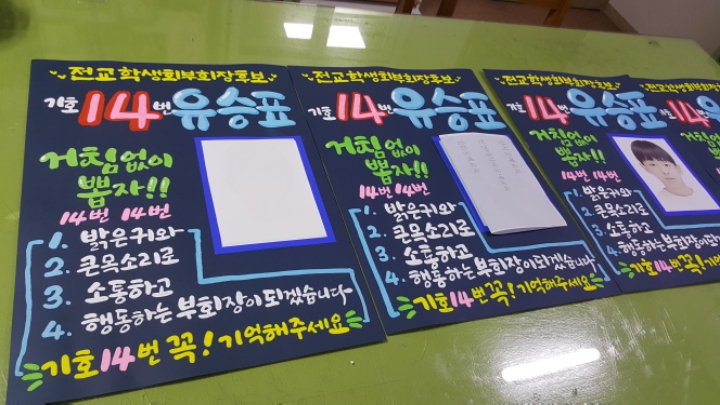 전교학생회부회장후보
기호 14번 유승표
거침없이
뽑자!!
14번 14번
1. 밝은귀와
2. 큰목소리로
3. 소통하고
4. 행동하는 부회장이 되겠습니다
기호14번 꼭! 기억해주세요
전교학생회부회장후보
기호 14번 유승표
거침없이
뽑자!!
14번 14번
1. 밝은귀와
2. 큰목소리로
3. 소통하고
4. 행동하는 부회장이 되겠습니다
기호14번 꼭! 기억해주세요
전교학생회부회장후보
기호 14번 유승표
거침없이
뽑자!!
14번 14번
1. 밝은귀와
2. 큰목소리로
3. 소통하고
4. 행동하는 부회장이되
기호14번 꼭! 기억해주세
전교학생회부회장
기호 14번